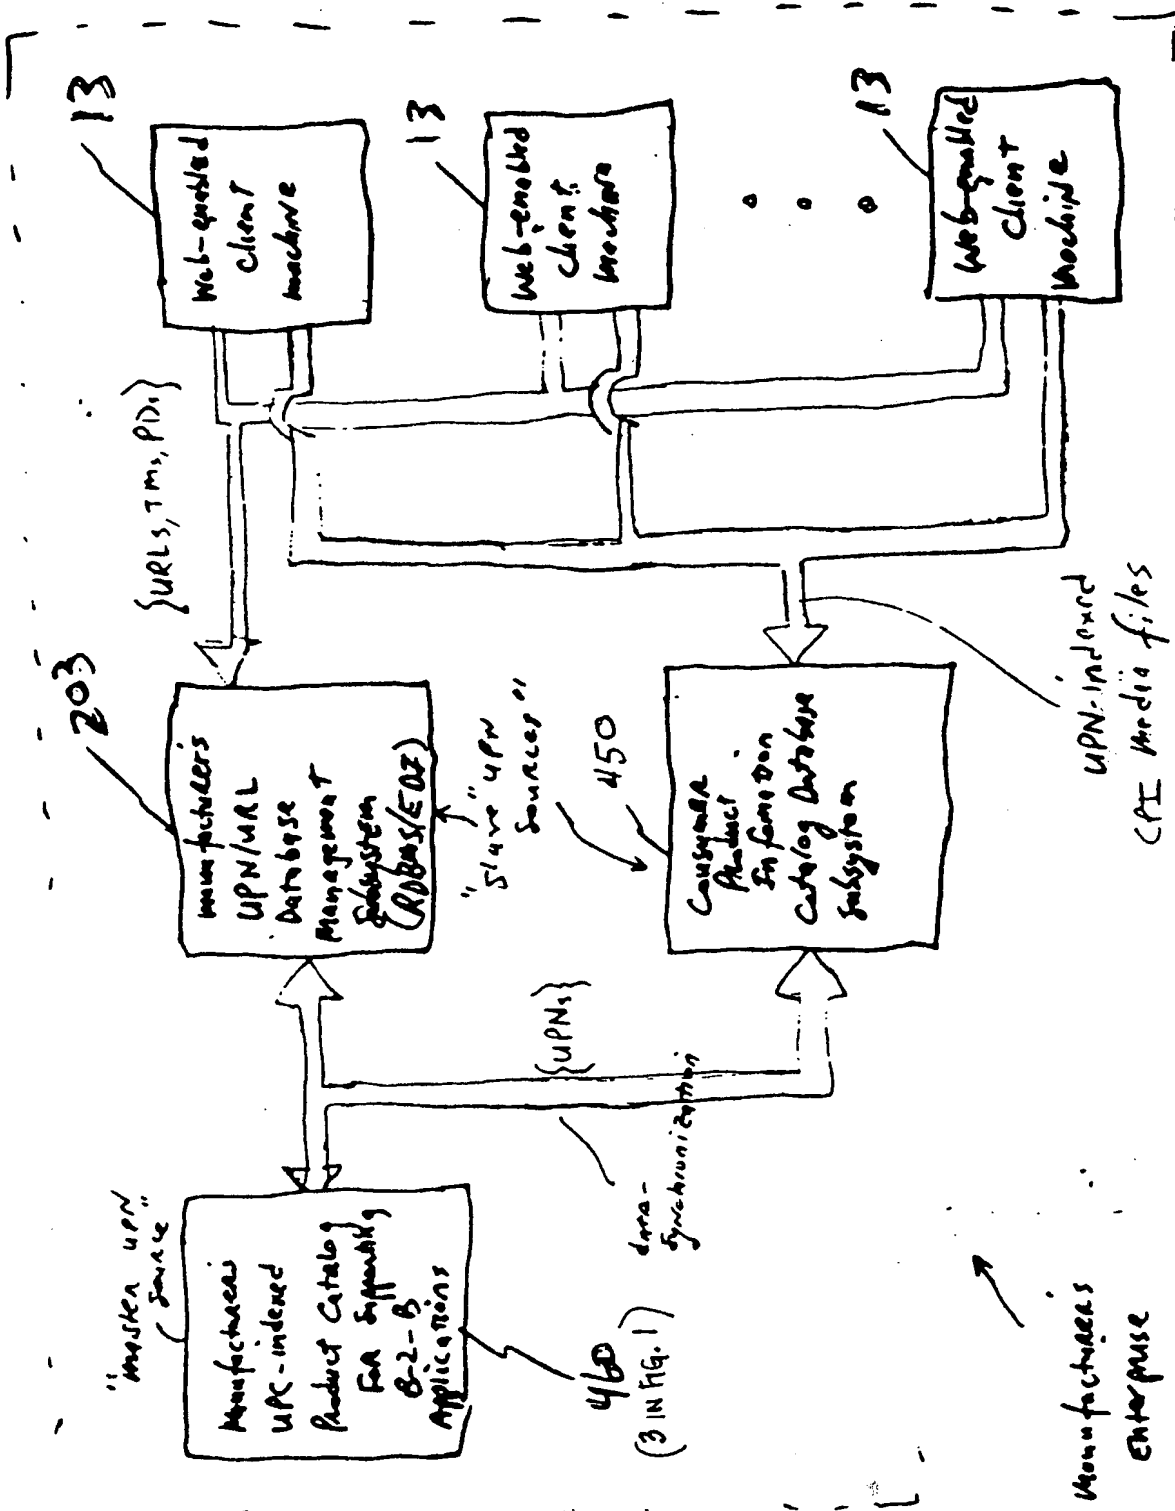 "Master UPN
Source"
Manufacturers
UPC-indexed
Product Catalog
For Supporting
B-2-B
Applications
460
(3 IN FIG. 1)
data-
Synchronization
{UPNs}
203
Manufacturers
UPN/URL
Database
Management
Subsystem
(RDBMS/EDI)
"Slave" UPN
Sources"
450
Consumer
Product
Information
Catalog Database
Subsystem
{URLs, TMs, PDs}
13
Web-enabled
Client
machine
13
Web-enabled
Client
machine
13
Web-enabled
Client
machine
UPN-Indexed
CPI media files
Manufacturers
Enterprise